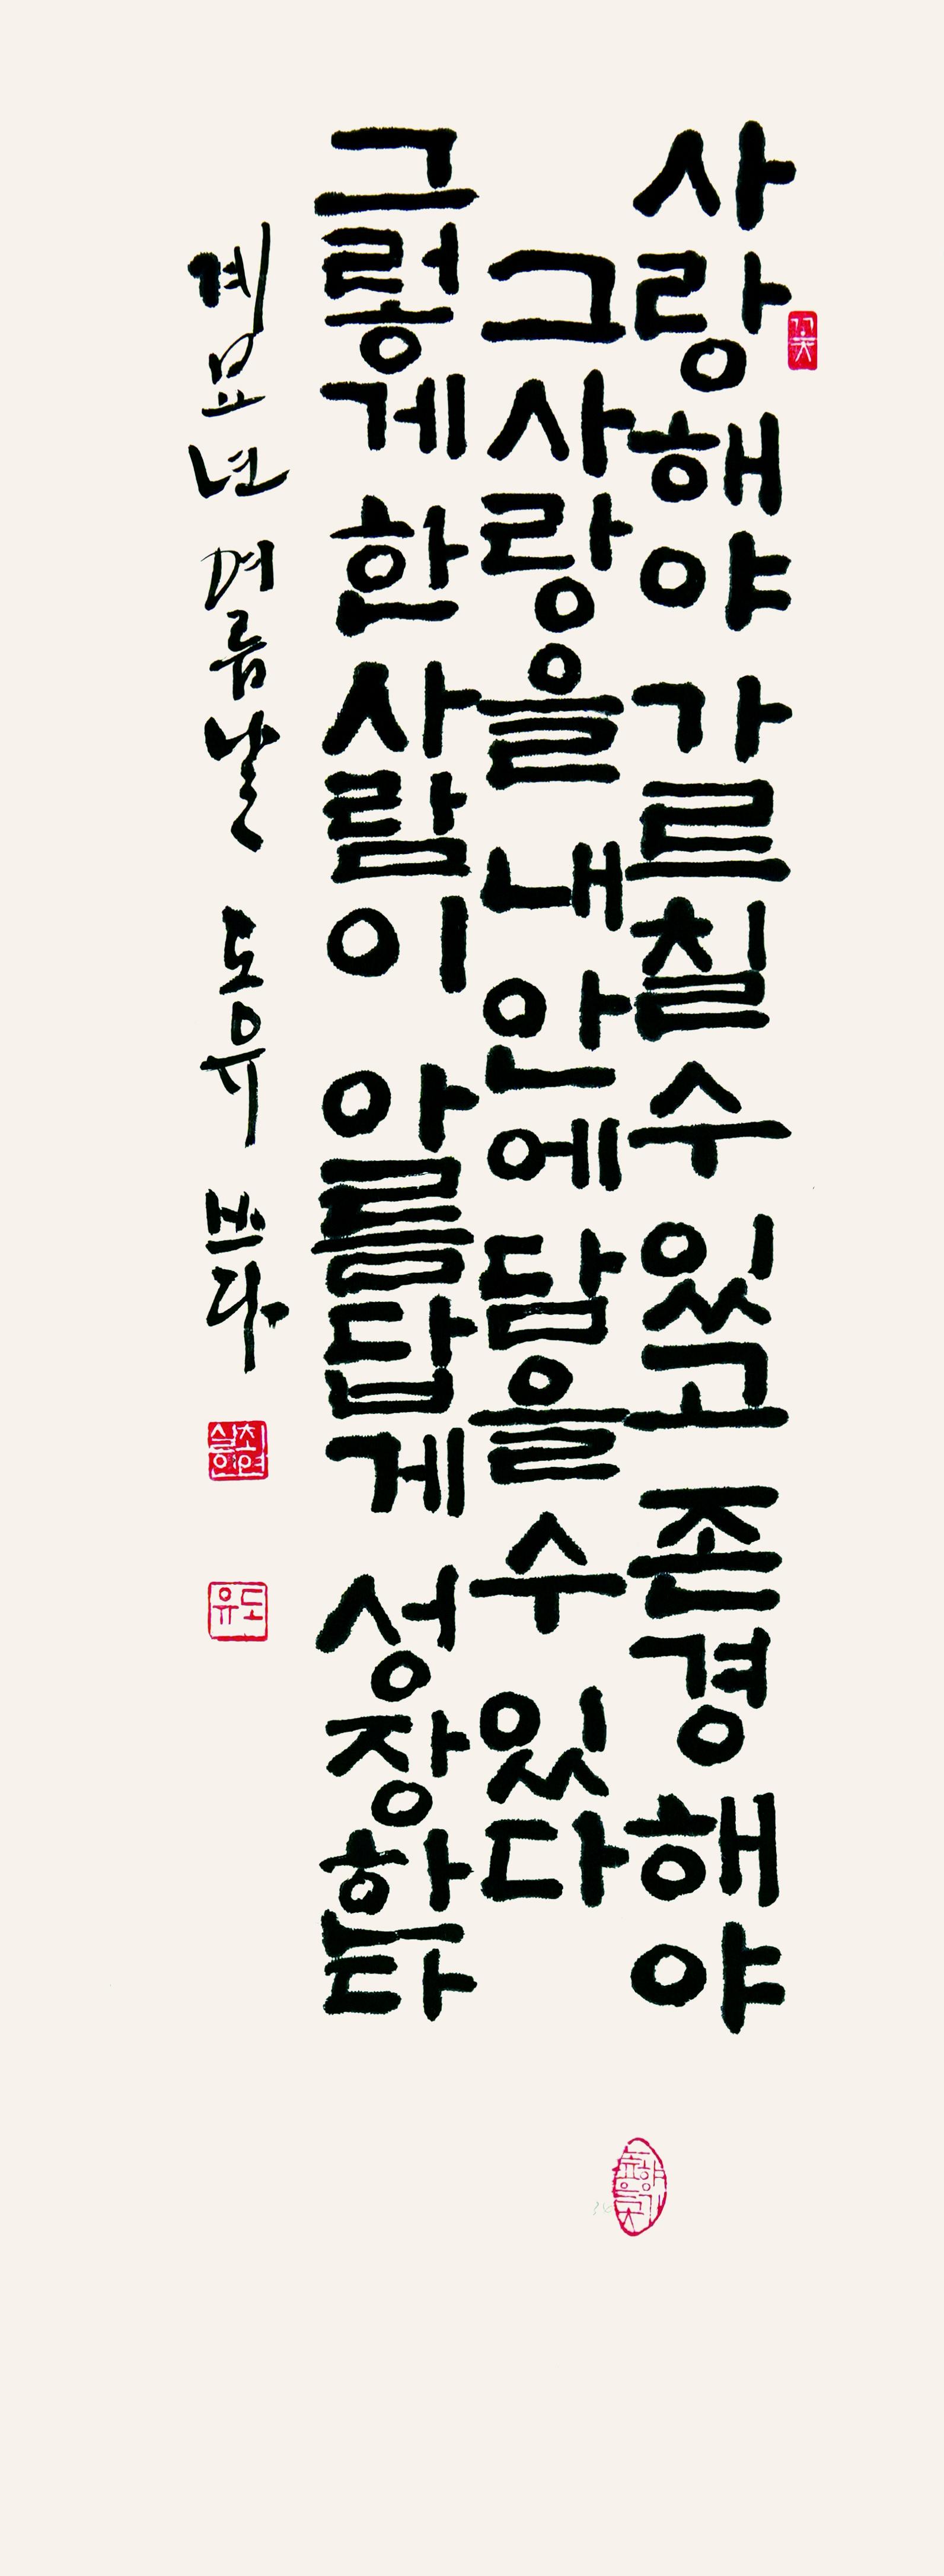 사랑해야 가르칠 수 있고 존경해야
그 사랑을 내 안에 담을 수 있다
그렇게 한 사람이 아름답게 성장한다
계묘년 여름날 도유 쓰다
꽃
도유